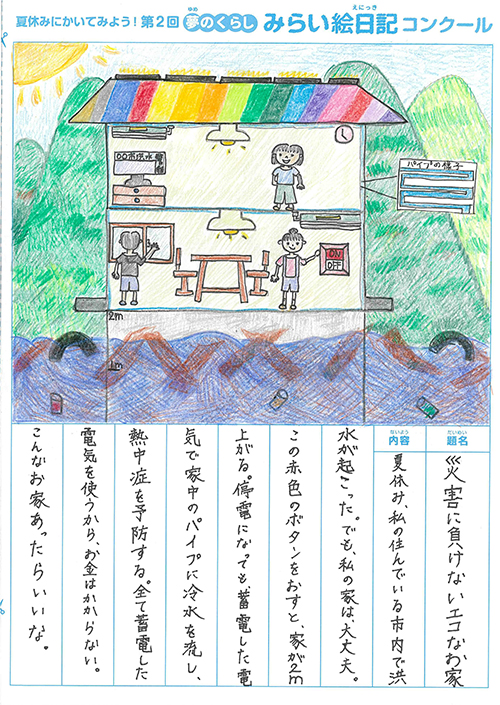 夏休みにかいてみよう！第2回 夢のくらし みらい絵日記コンクール
ゆめ
えにっき
〇〇市洪水
パイプの様子
ON
OFF
2m
1m
だいめい
題名
災害に負けないエコなお家
ないよう
内容
夏休み、私の住んでいる市内で洪
水が起こった。でも、私の家は、大丈夫。
この赤色のボタンをおすと、家が2m
上がる。停電になっても、蓄電した電
気で家中のパイプに冷水を流し、
熱中症を予防する。全て蓄電した
電気を使うから、お金はかからない。
こんなお家あったらいいな。